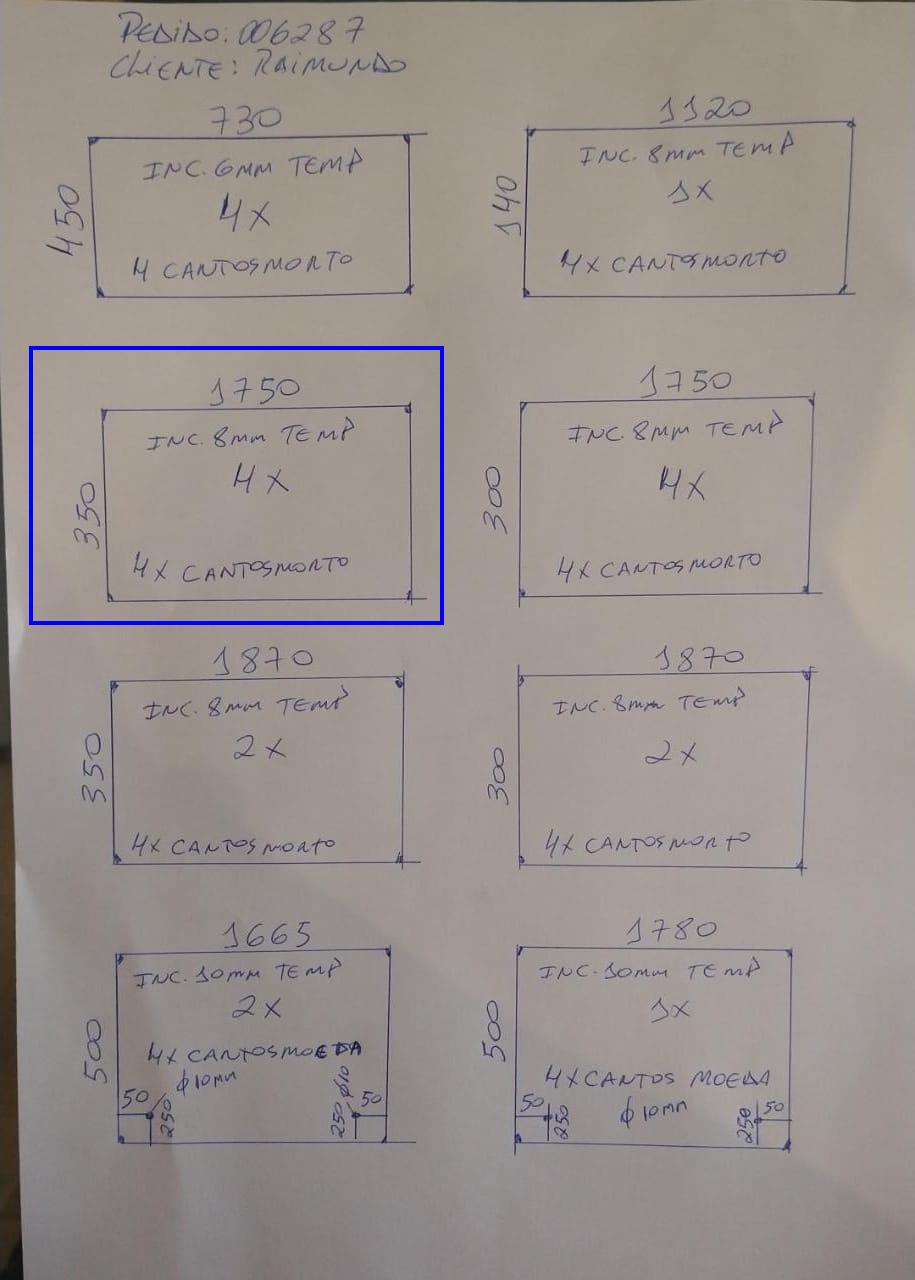 PEDIDO: 006287
CLIENTE: RAIMUNDO
730
INC. 6MM TEMP
4X
450
4 CANTOSMORTO
1120
INC. 8mm TEMP
1X
140
4X CANTOSMORTO
1750
INC. 8mm TEMP
4X
350
4X CANTOSMORTO
1750
INC. 8MM TEMP
4X
300
4X CANTOSMORTO
1870
INC. 8mm TEMP
2X
350
4X CANTOSMORTO
1870
INC. 8mm TEMP
2X
300
4X CANTOSMORTO
1665
INC. 10mm TEMP
2X
500
4X CANTOSMOEDA
ϕ10mm
50
250
250
ϕ10
50
1780
INC. 10mm TEMP
1X
500
4X CANTOS MOEDA
50
250
ϕ10mm
250
50